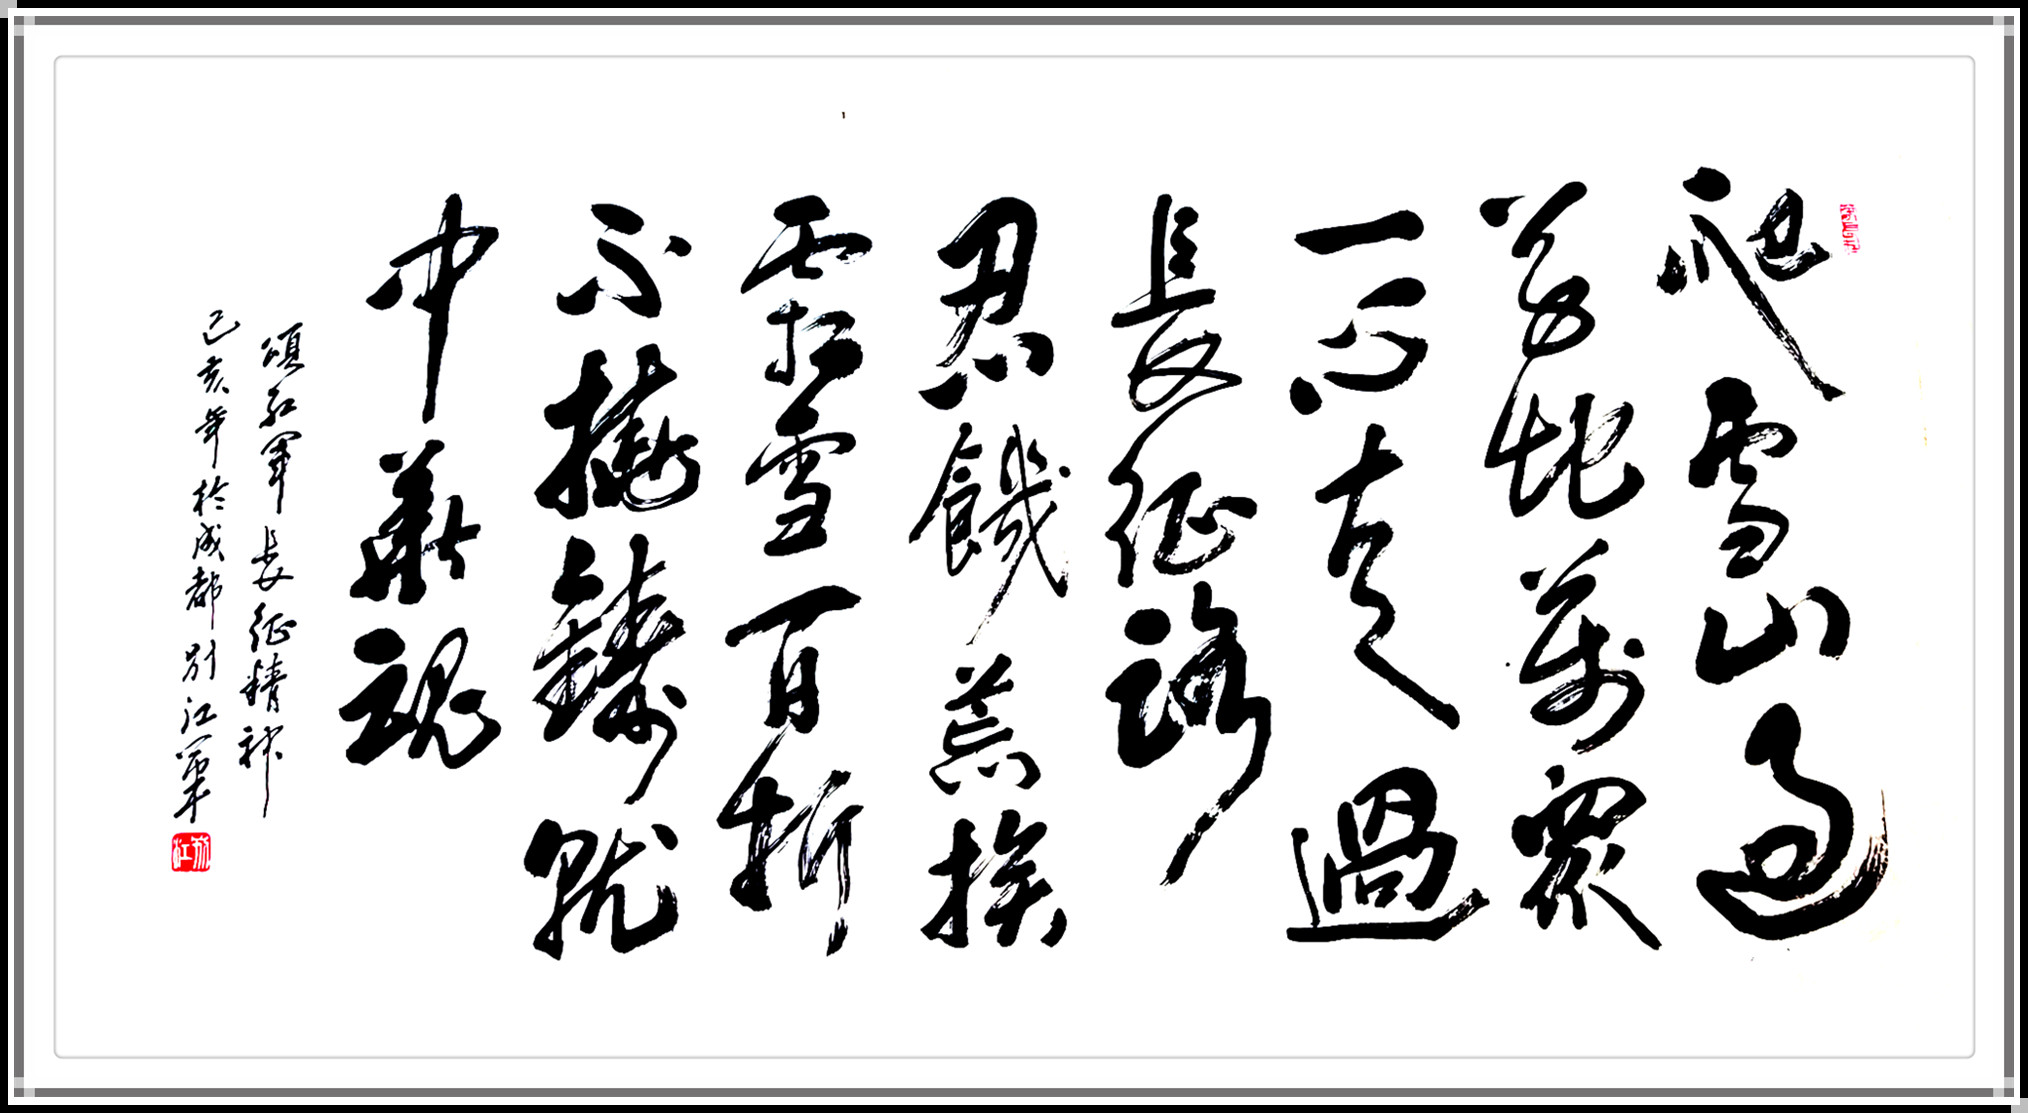 爬雪山過
草地萬眾
一心走過
長征路
忍饑荒挨
霜雪百折
不撓鑄就
中華魂
頌紅軍長征精神
己亥年於成都別江軍